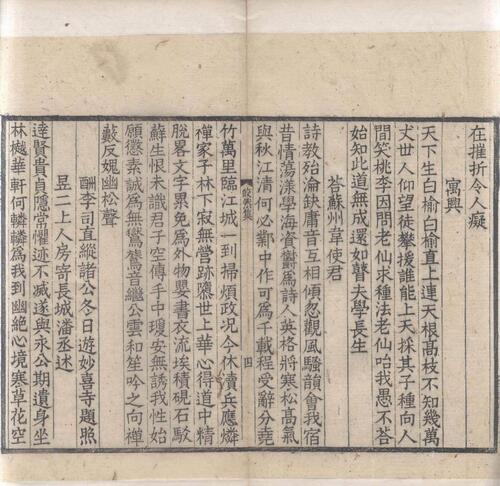 在摧折令人癡
寓興
天下生白榆白榆直上連天根髙枝不知幾萬
丈世人仰望徒攀援誰能上天採其子種向人
間笑桃李因問老仙求種法老仙咍我愚不荅
始知此道無成還如瞽夫學長生
荅蘇州韋使君
詩教殆淪缺庸音互相傾忽觀風騷韻會我宿
昔情蕩漾學海資鬱爲詩人英格將寒松髙氣
與秋江清何必鄴中作可爲千載程受辭分堯
皎然集
四
竹萬里臨江城一到掃煩政况今休瀆兵應憐
禪家子林下寂無營跡隳世上華心得道中精
脫畧文字累免爲外物嬰書衣流埃積硯石駮
蘇生恨未識君子空傳手中瓊安無誘我性始
願愆素誠爲無鸞鷟音繼公雲和笙吟之向禪
藪反媿幽松聲
酬李司直縱諸公冬日遊妙喜寺題照
昱二上人房寄長城潘丞述
達賢貴貞隱常懼迹不滅遂與永公期遺身坐
林樾華軒何轔轔爲我到幽絶心境寒草花空